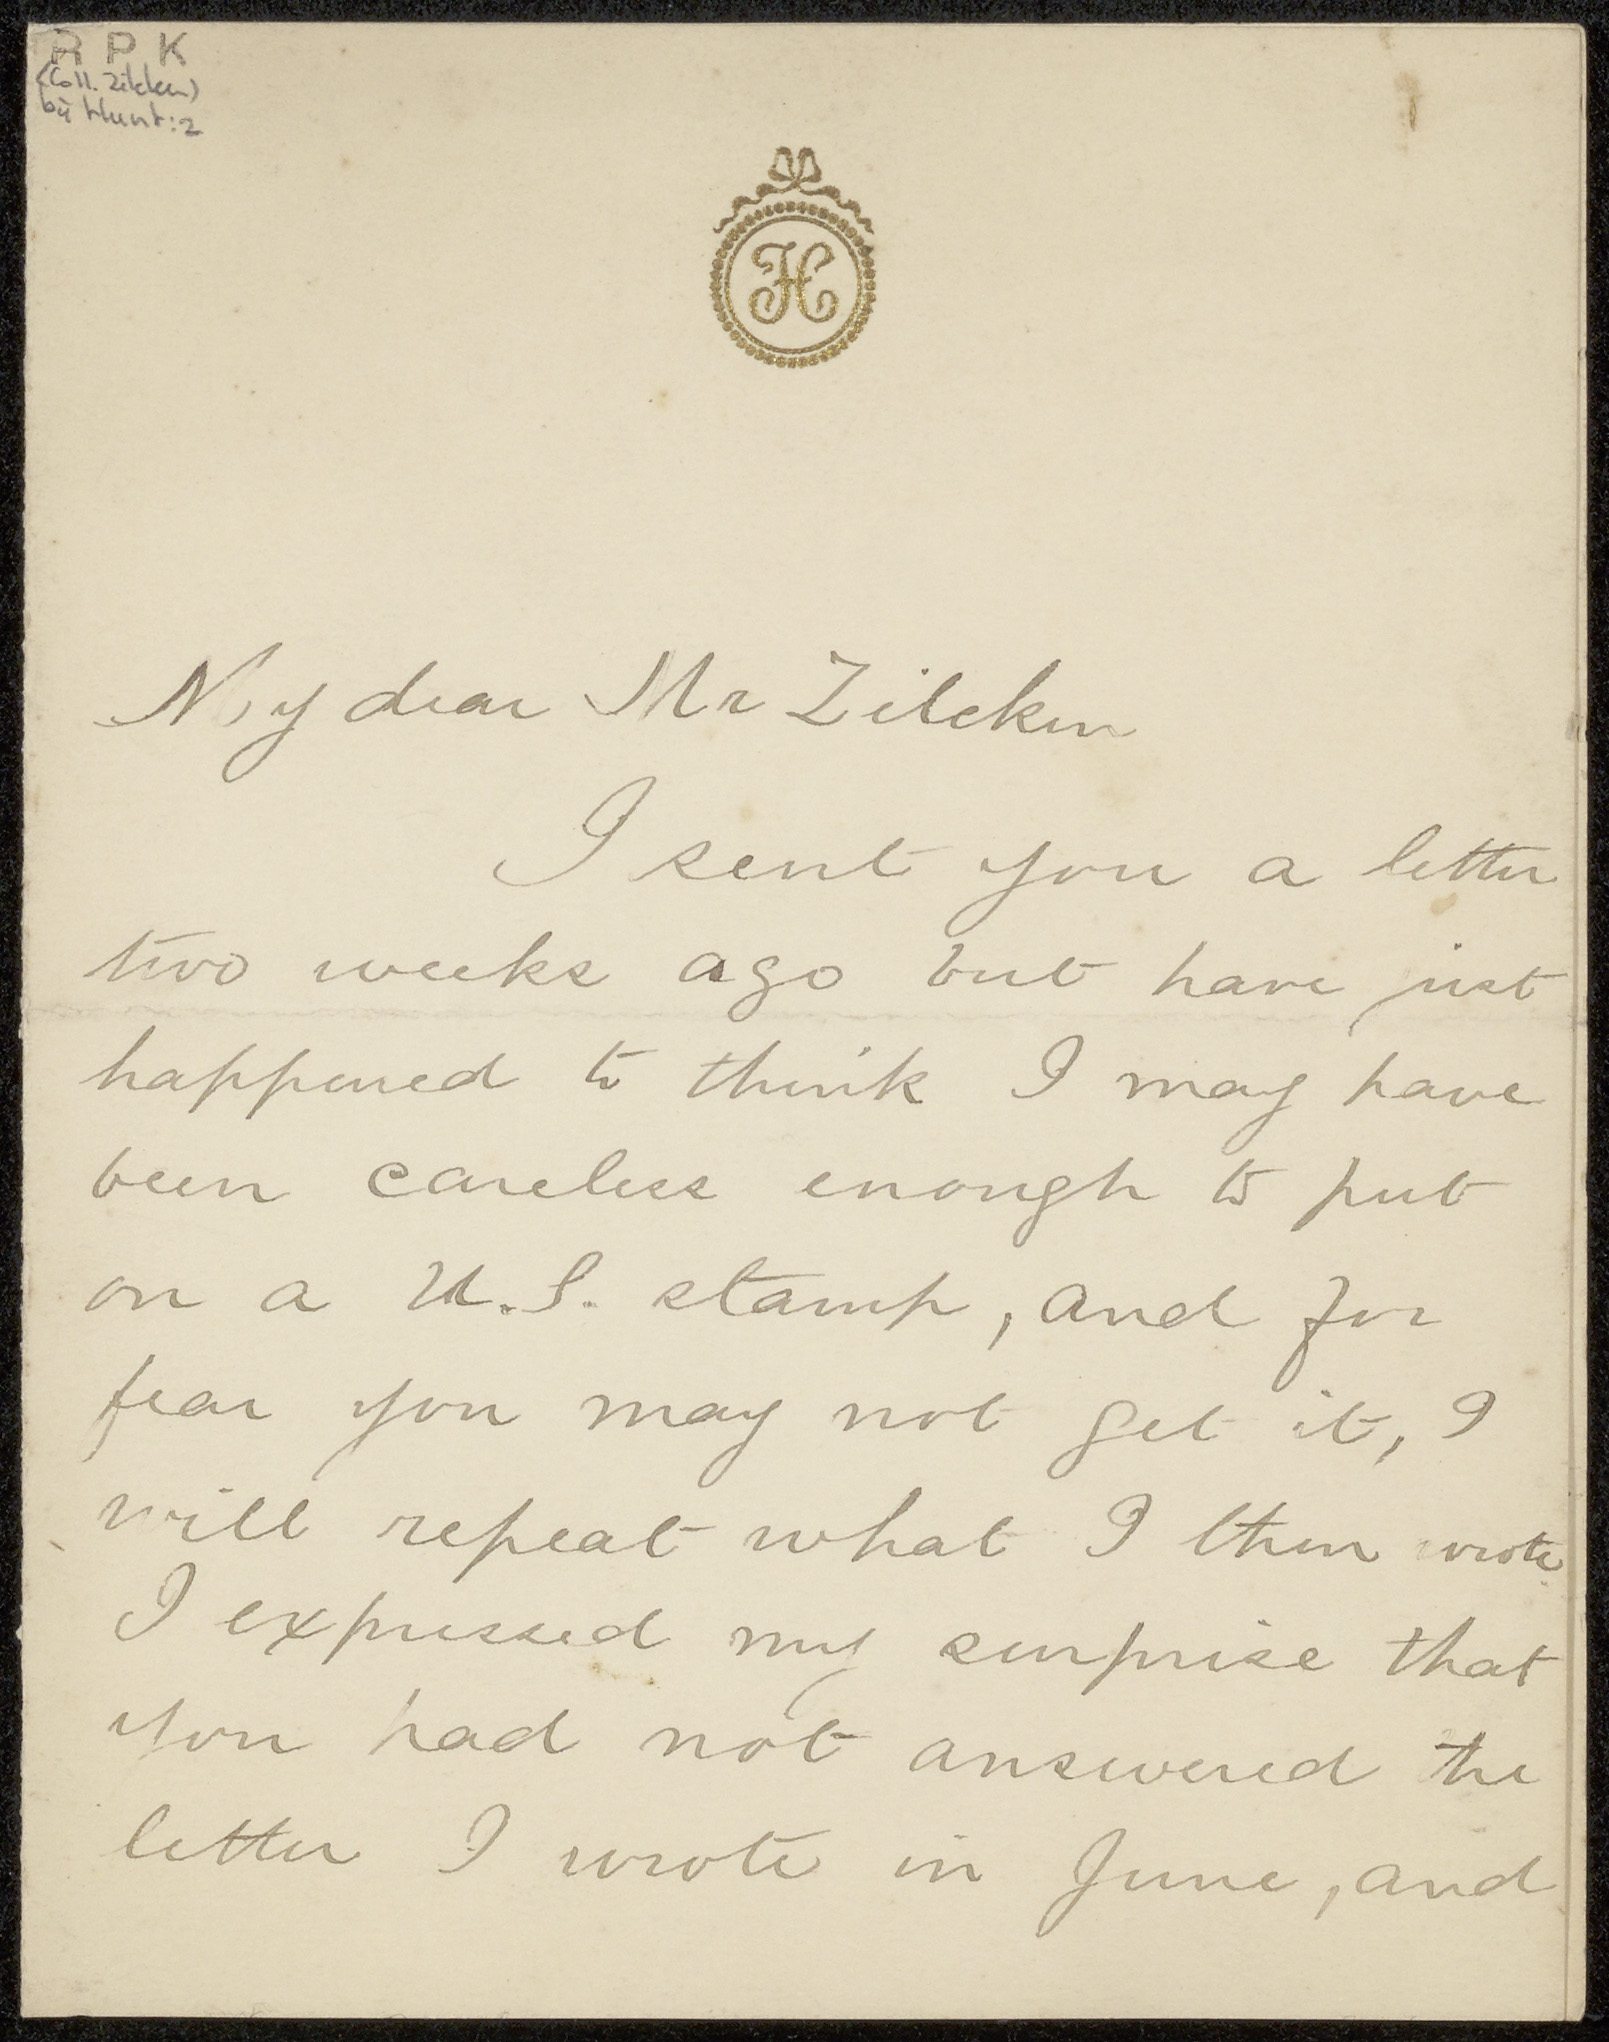 R P K
(Coll. Zilcken)
bij Hunt: 2
H
My dear Mr Zilcken
I sent you a letter
two weeks ago but have just
happened to think I may have
been careless enough to put
on a U.S. stamp, and for
fear you may not get it, I
will repeat what I then wrote.
I expressed my surprise that
you had not answered the
letter I wrote in June, and